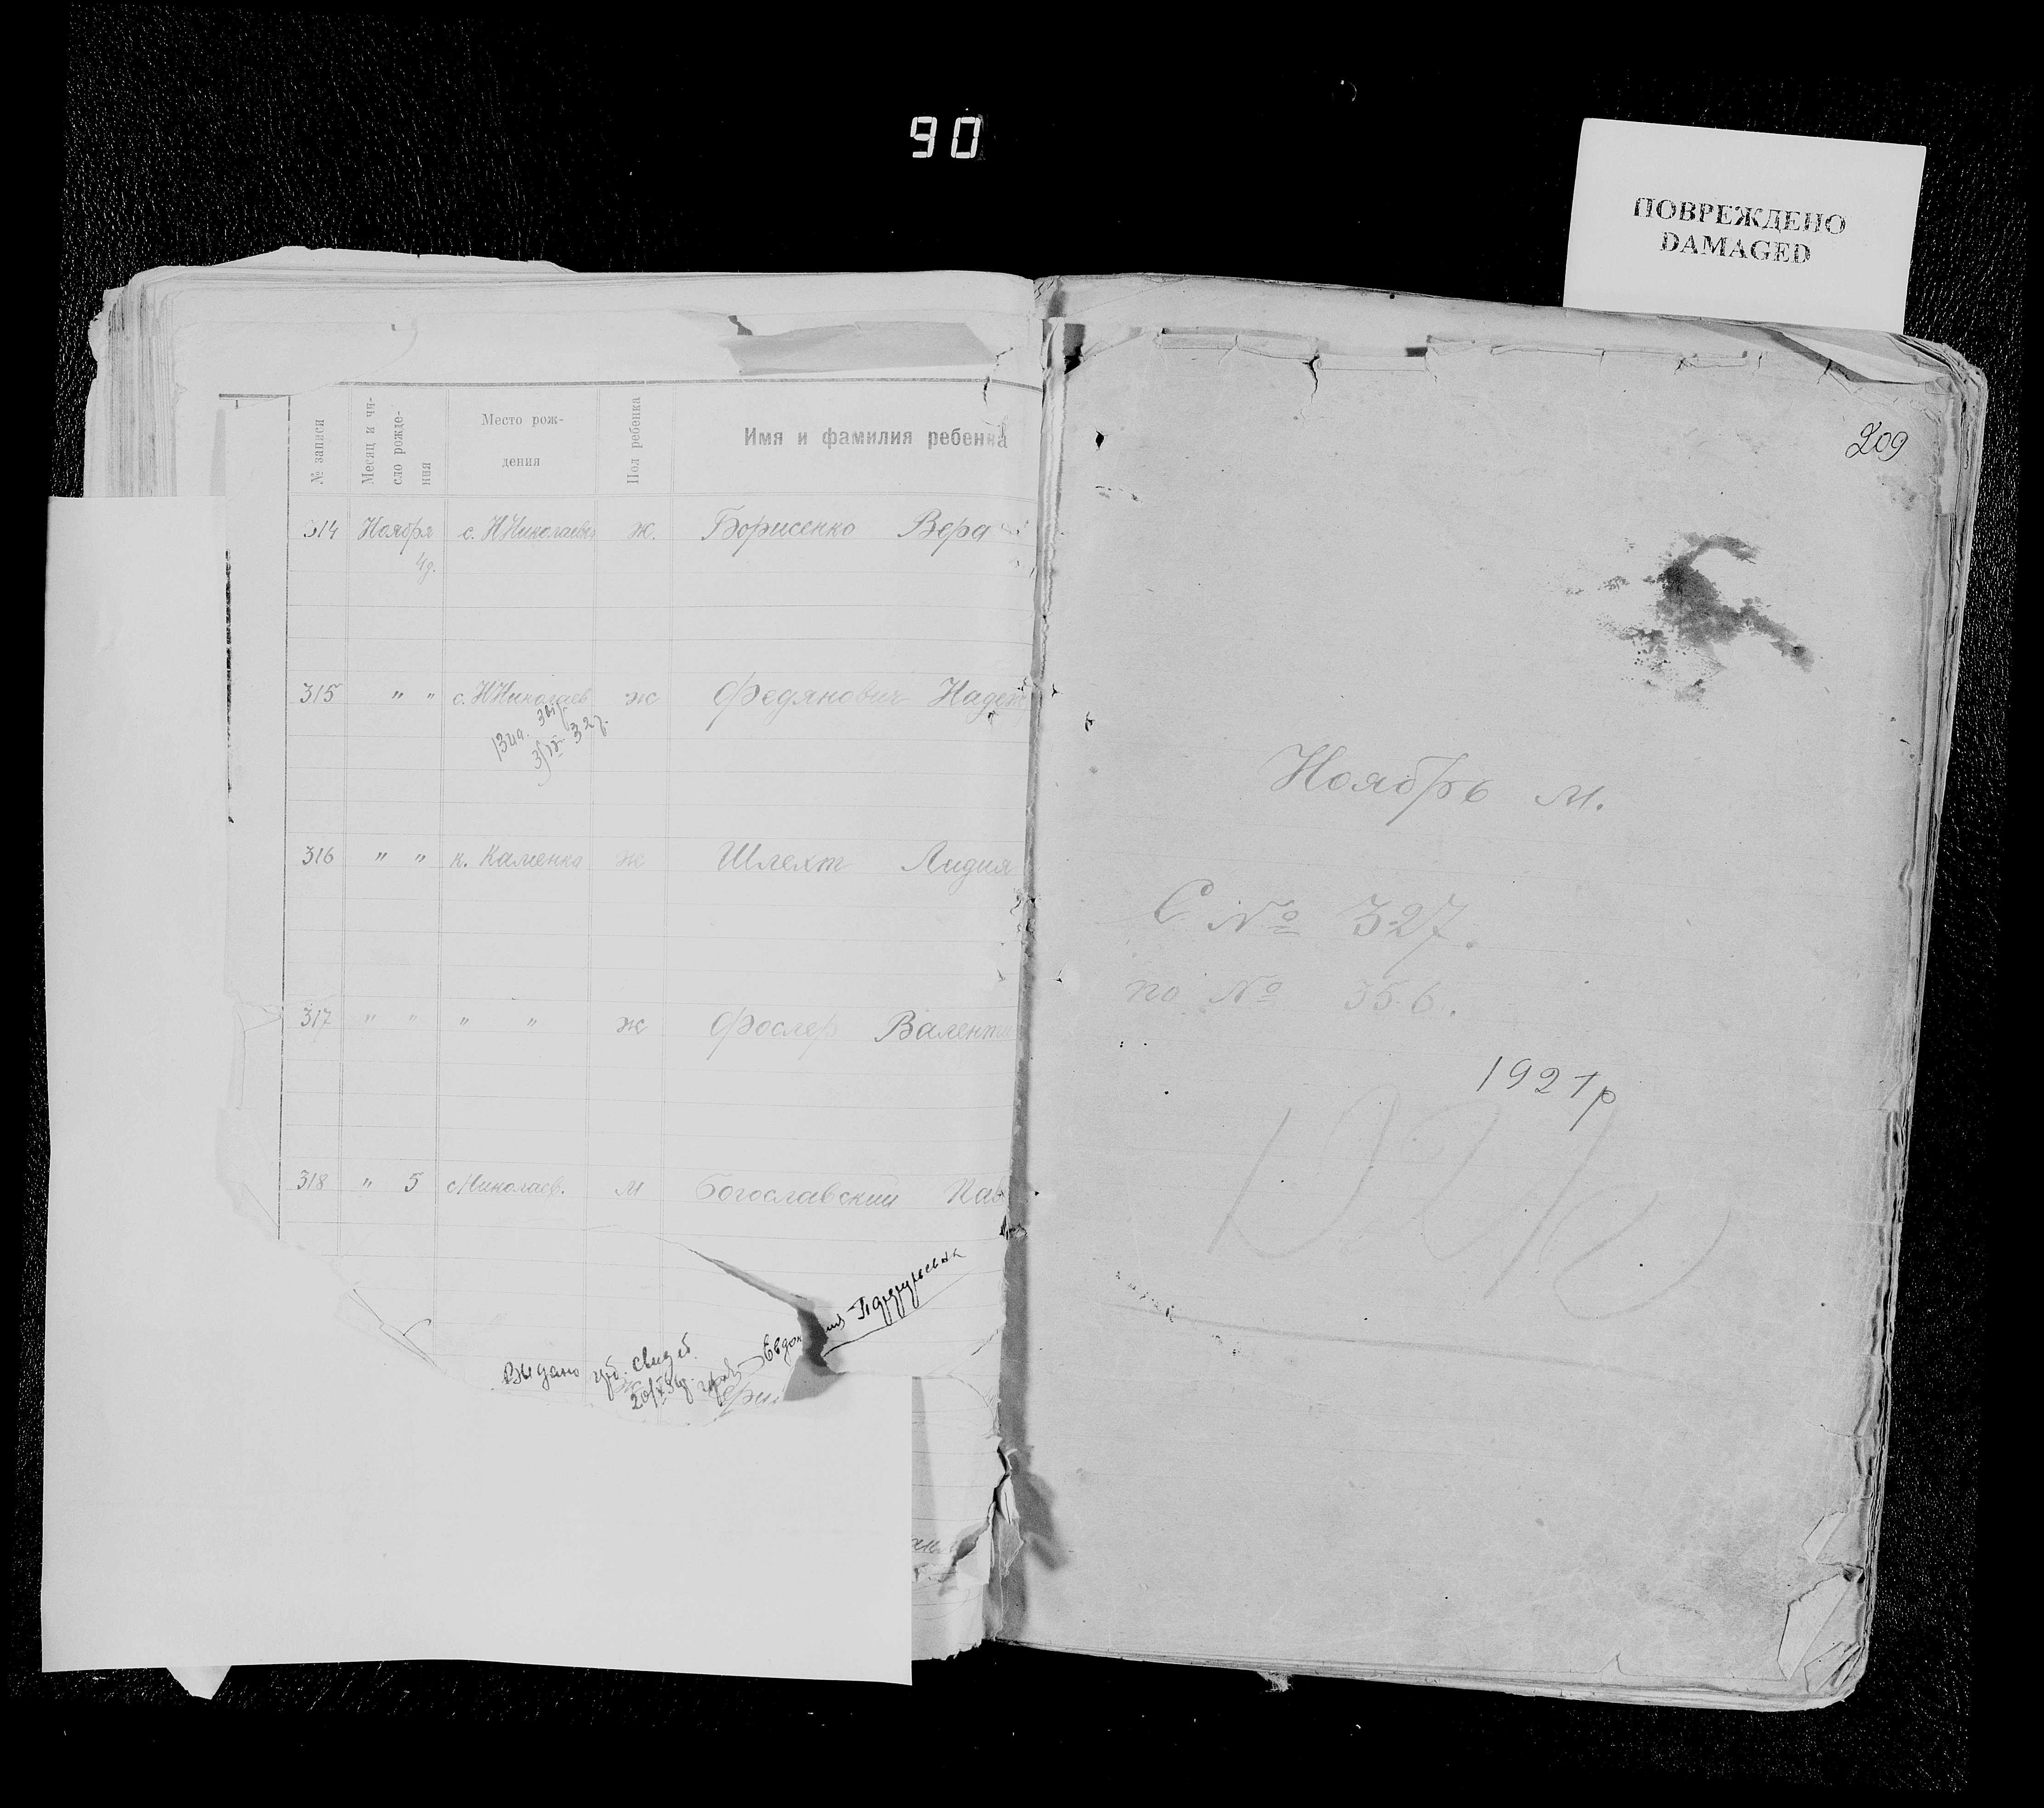 90
ПОВРЕЖДЕНО
DAMAGED
№ записи
Месяц и чи-
сло рожде-
ния
Место рож-
дения
Пол ребенка
Имя и фамилия ребенка
314 Ноября с. ННиколаевк ж. Борисенко Вера
4д.
315 " " с. ННиколаев ж Федянович Надеж
316 " " к. Каменка ж Шлехт Лидия
317 " " " " ж Фослер Валенти
318 " 5 с Николаев. м Богославский Пав
Выдано
свид.
209
Ноябрь м.
С № 327.
по № 356.
1921р